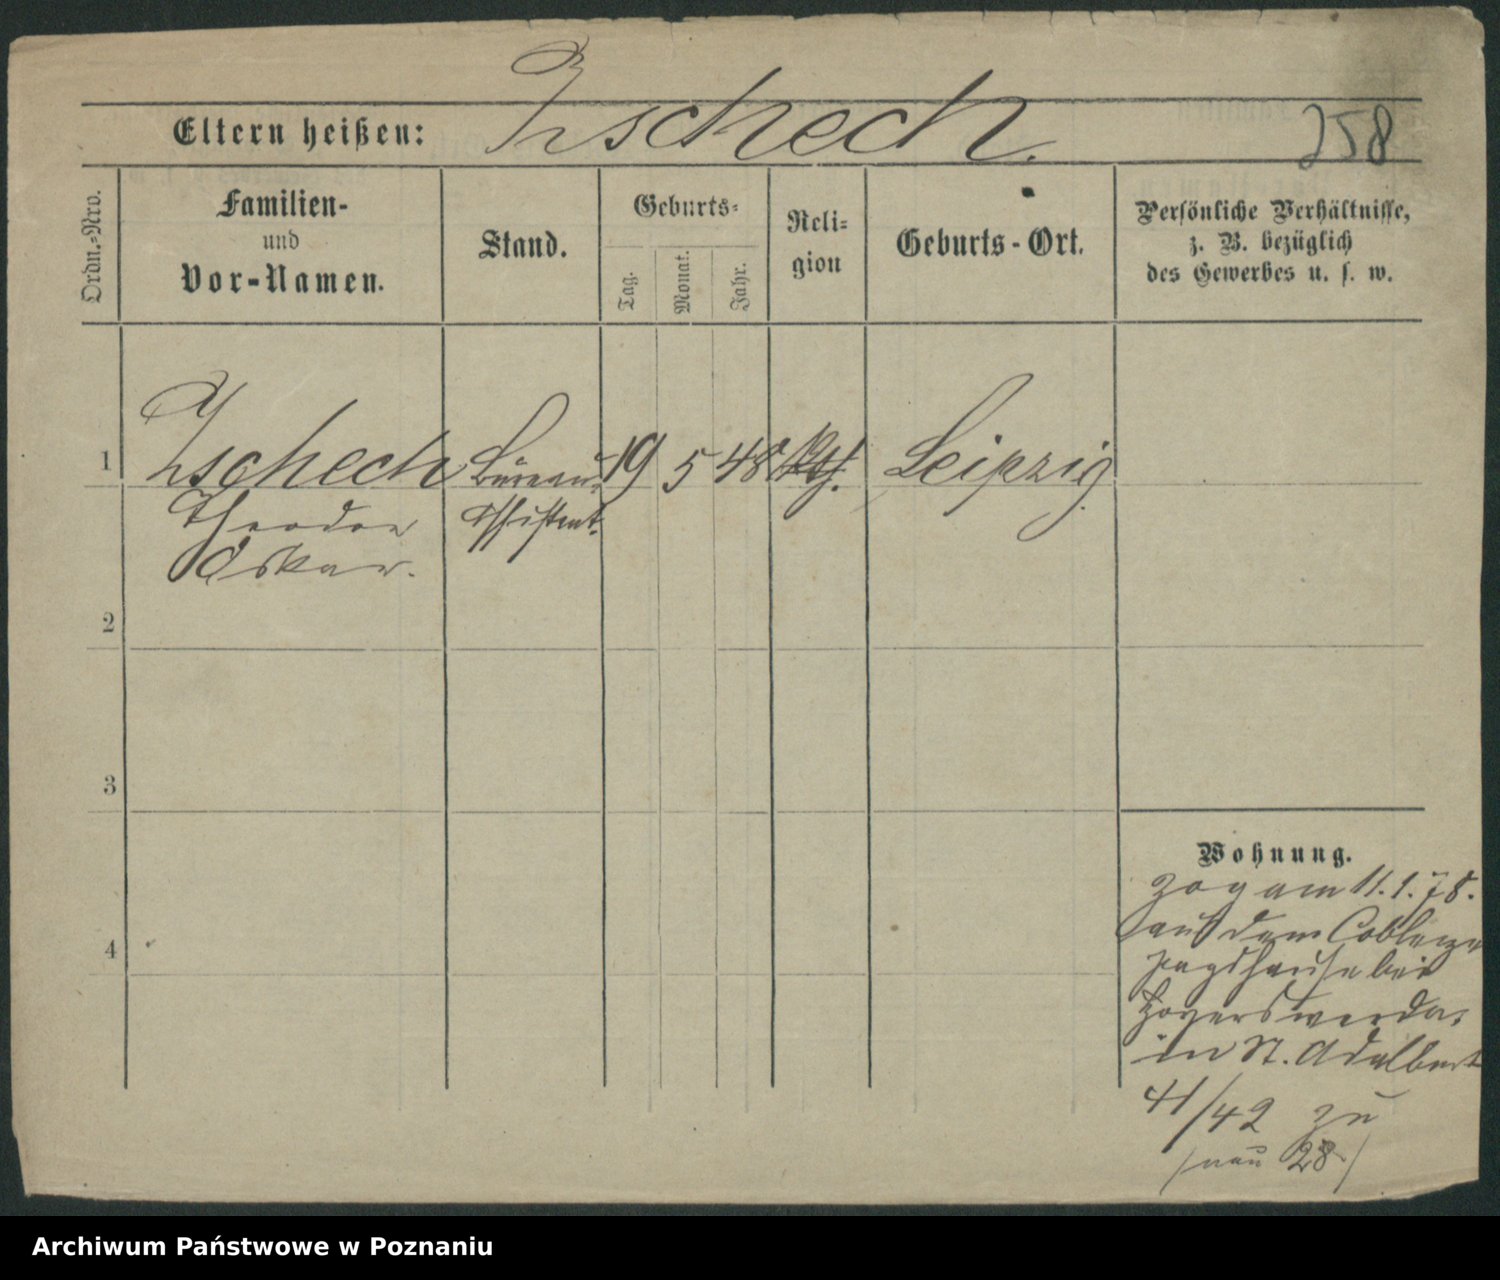 Zschech.
Eltern heißen:
258
Ordn.-Nro.
Familien-
und
Vor-Namen.
Stand.
Geburts-
Tag.
Monat.
Jahr.
Reli-
gion
Geburts-Ort.
Persönliche Verhältnisse,
z. B. bezüglich
des Gewerbes u. s. w.
1 Zschech Büreau- 19 5 48 Leipzig.
Theodor Assistent.
Oskar.
2
3
Wohnung.
zog am 11.1.78.
aus dem
bei
Hoyerswerda,
4
in St. Adalbert
41/42 zu
(neu 28)
Archiwum Państwowe w Poznaniu